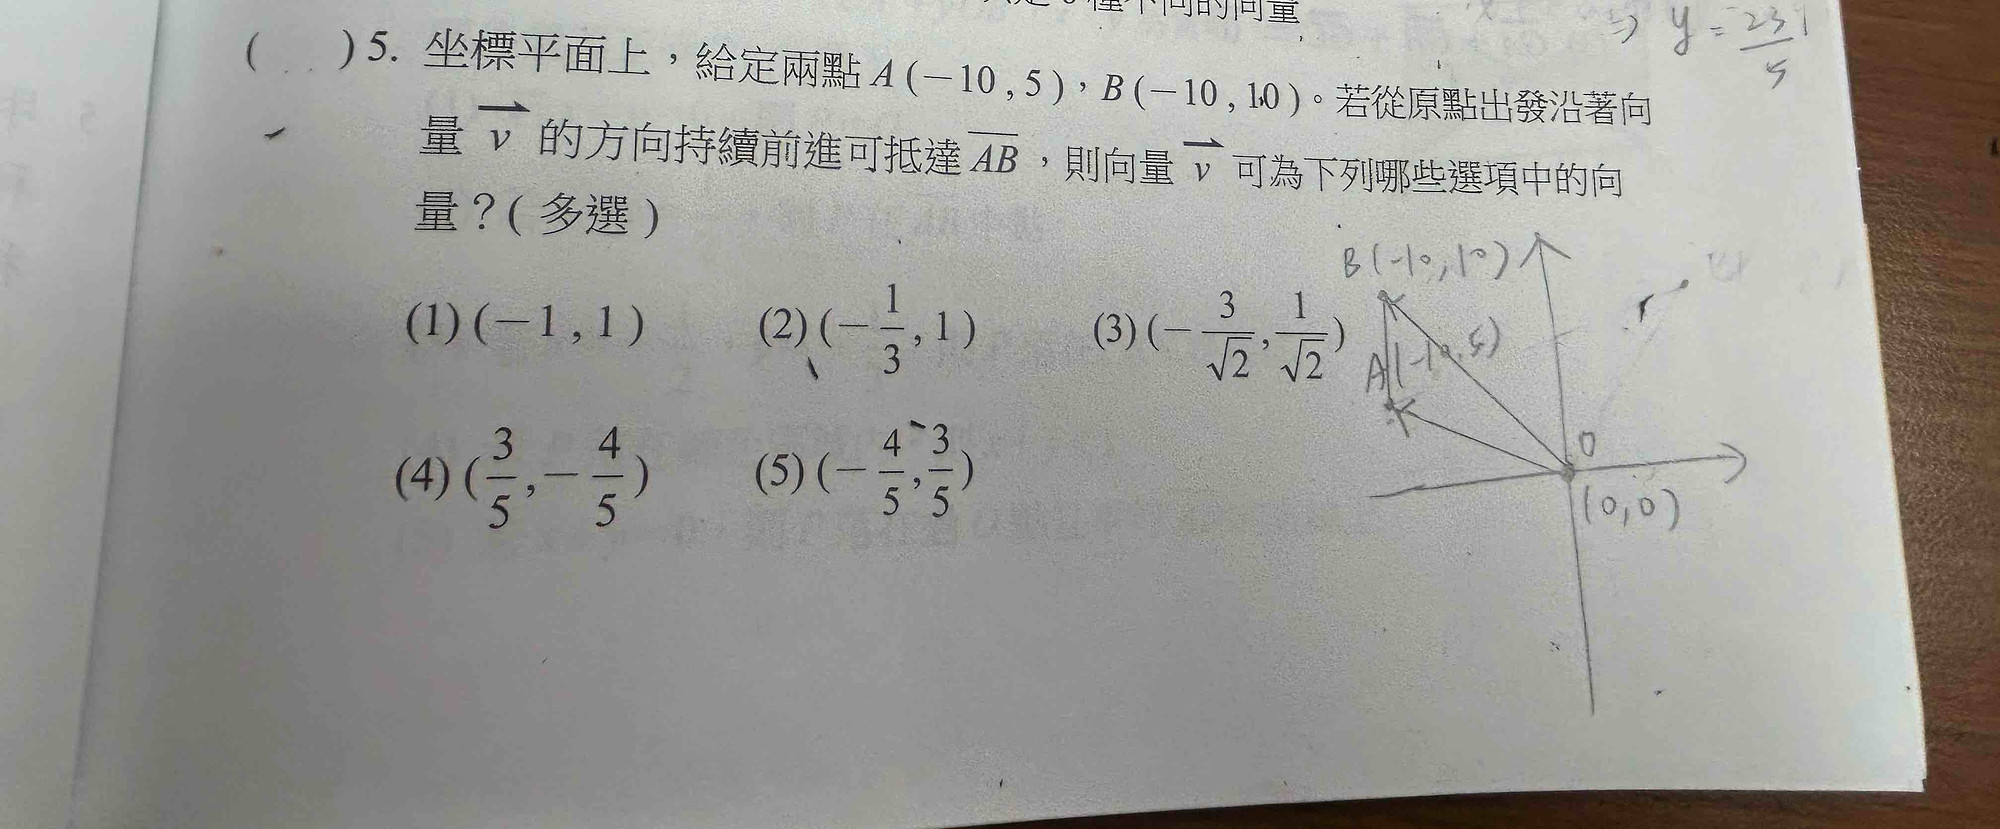 種不同的向量
⇒ y = 231/5
( )5. 坐標平面上，給定兩點 A(−10 , 5)，B(−10 , 10)。若從原點出發沿著向
量 v⃗ 的方向持續前進可抵達 A̅B̅，則向量 v⃗ 可為下列哪些選項中的向
量？( 多選 )
B(-10,10)
(1) (−1 , 1) (2) (−1/3 , 1) (3) (−3/√2 , 1/√2)
A(-10,5)
(4) (3/5 , −4/5) (5) (−4/5 , 3/5)
0
(0,0)